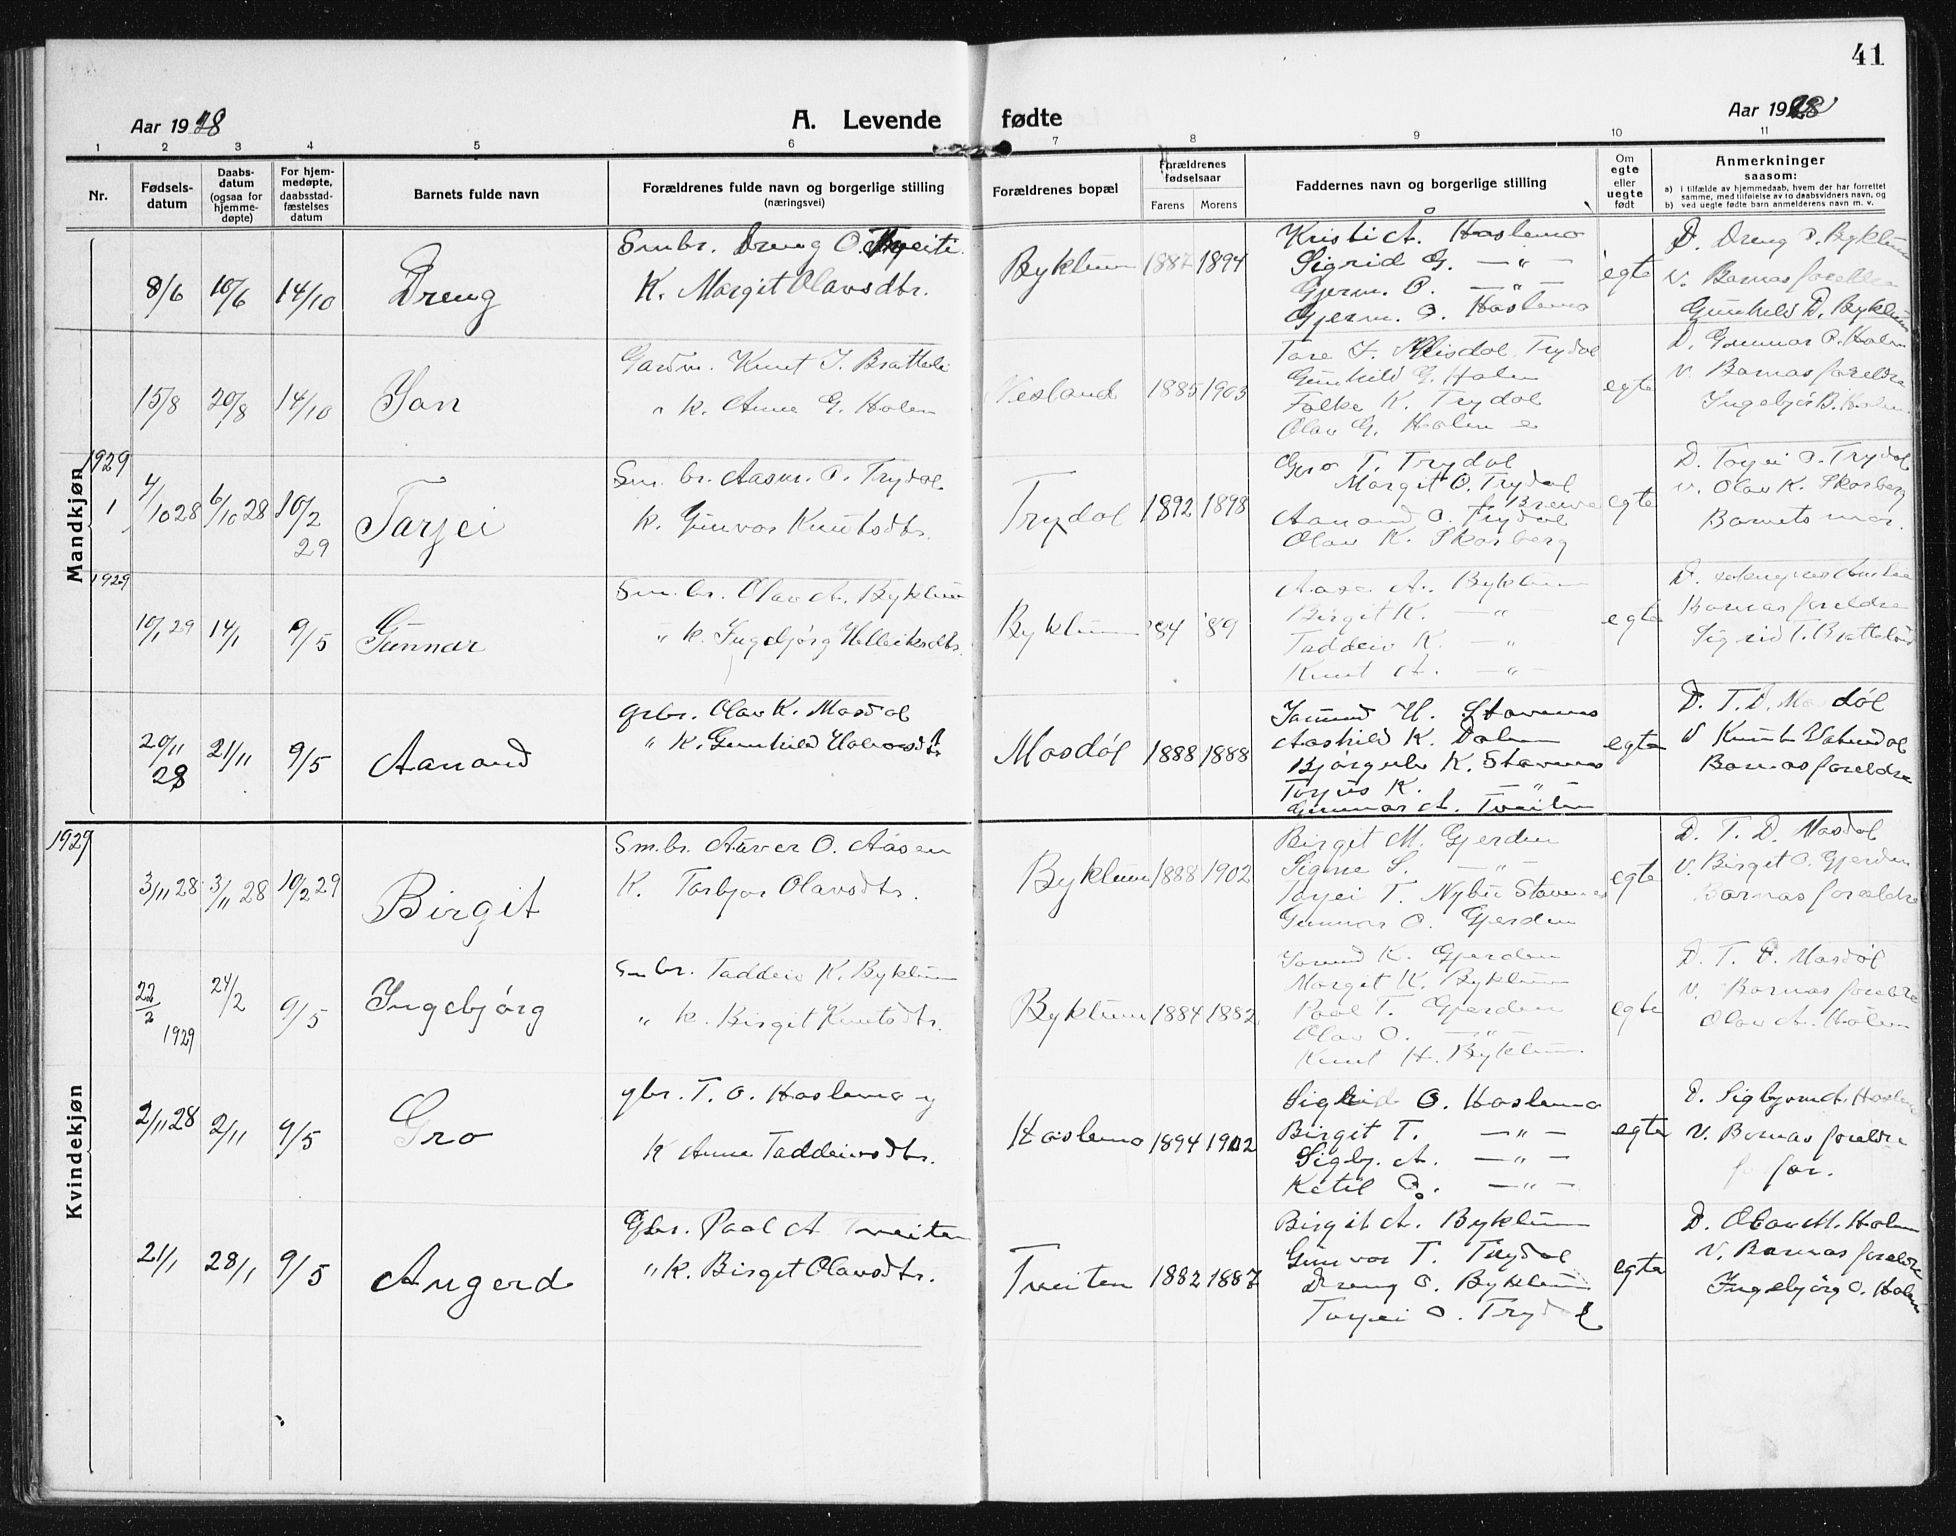 41
Aar 1928
A. Levende fødte
Aar 1928
1 2 3 4 5 6 7 8 9 10 11
Nr.
Fødsels-datum
Daabs-datum (ogsaa for hjemme-døpte)
For hjem-medøpte, daabsstad-fæstelses datum
Barnets fulde navn
Forældrenes fulde navn og borgerlige stilling (næringsvei)
Forældrenes bopæl
Forældrenes fødselsaar
Farens Morens
Faddernes navn og borgerlige stilling
Om egte eller uegte født
Anmerkninger saasom:
a) i tilfælde av hjemmedaab, hvem der har forrettet samme, med tilføielse av to daabsvidners navn, og
b) ved uegte fødte barn anmelderens navn m. v.
Mandkjøn
8/6 10/6 14/10 Dreng
Smbr. Dreng O. Tveiti
K. Margit Olavsdtr.
Byklum 1887 1894
Kristi A. Hoslemo
Sigrid G. —"—
Gjerm. O. —"—
Gjerm. O. Hoslemo
egte
D. Dreng O. Byklum
V. Barnas foreldre
Gunhild D. Byklum
15/8 20/8 14/10 Jon
Gardm. Knut J. Bratteli
" K. Anne G. Holen
Nesland 1885 1903
Tore J. Trydal
Gunhild G. Holen
Folke K. Trydal
Olav G. Holen
egte
D. Gunnar O. Holen
V. Barnas foreldre
Ingebjør B. Holen
1929
1 4/10 28 6/10 28 10/2 29 Tarjei
Sm. br. Aasm. O. Trydal
K. Gunvor Knutsdtr.
Trydal 1892 1898
Gro T. Trydal
Margit O. Trydal
Breive
Aanand O. Trydal
Olav K. Skarberg
egte
D. Torjei O. Trydal
V. Olav K. Skarberg
Barnets mor.
1929
10/1 29 14/1 9/5 Gunnar
Sm. br. Olav A. Byklum
" K. Ingebjørg Helleiksdtr.
Byklum '84 '89
Aase A. Byklum
Birgit K. —"—
Taddeiv K. —"—
Knut A. —"—
egte
Barnas foreldre
Sigrid T. Bratteland
20/11 28 21/11 9/5 Aanond
Gbr. Olav K. Mosdøl
" K. Gunhild Halvorsdtr.
Mosdøl 1888 1888
Jorund H. Stavenes
Aashild K. Dalen
Bjørgulv K. Stavenes
Torjus K. —"—
Gunnar A. Tveiten
egte
D. T. D. Mosdøl
V Knut Vatndal
Barnas foreldre
Kvindekjøn
1929
3/11 28 3/11 28 10/2 29 Birgit
Sm.br. Aaver O. Aasen
K. Torbjør Olavsdtr.
Byklum 1888 1902
Birgit M. Gjerden
Signe S. —"—
Torjei T. Nybu Stavenes
Gunnar O. Gjerden
egte
D. T. D. Mosdøl
V. Birgit O. Gjerden
Barnas foreldre
22/2 1929 24/2 9/5 Ingebjørg
Sm br. Taddeiv K. Byklum
" K. Birgit Knutsdtr.
Byklum 1884 1882
Jorund K. Gjerden
Margit K. Byklum
Paal T. Gjerden
Olav O. —"—
Knut H. Byklum
egte
D. T. D. Mosdøl
V. Barnas foreldre
Olav A. Holen
2/11 28 2/11 9/5 Gro
gbr. T. O. Hoslemo
K Anne Taddeivsdtr.
Hoslemo 1894 1902
Sigrid O. Hoslemo
Birgit T. —"—
Sigbj. A. —"—
Ketil O. —"—
egte
D. Sigbjørn A. Hoslemo
V. Barnas foreldre
far.
21/1 28/1 9/5 Angerd
Gbr. Paal A Tveiten
" K. Birgit Olavsdtr.
Tveiten 1882 1887
Birgit A. Byklum
Gunvor T. Trydal
Dreng O. Byklum
Torjei O. Trydal
egte
D. Olav M. Holen
V. Barnas foreldre
Ingebjørg O. Holen